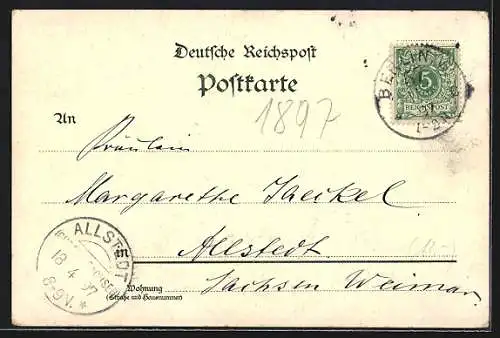 Deutsche Reichspost
Postkarte
BERLIN
5
REICHSPOST
97
1897
An
Fräulein
Margarethe Jaeckel
in Allstedt
Sachsen Weimar
Wohnung
(Straße und Hausnummer)
ALLSTEDT
18 4 97
8-9V. *